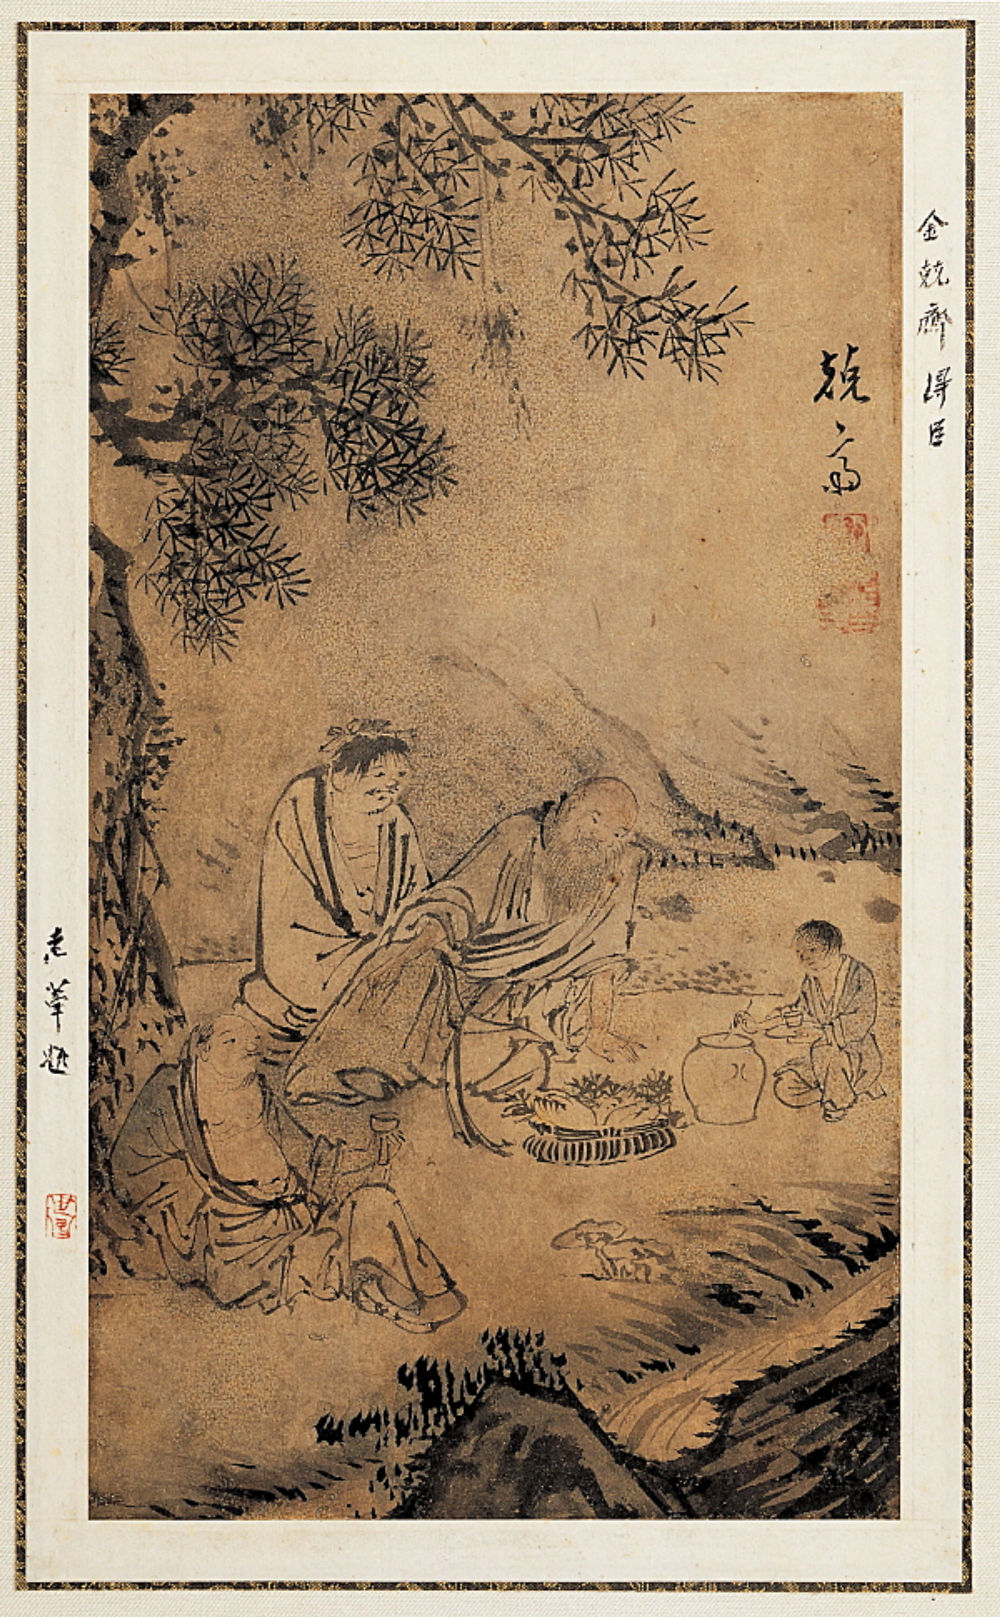 金兢齋 得臣
兢齋
老葦題